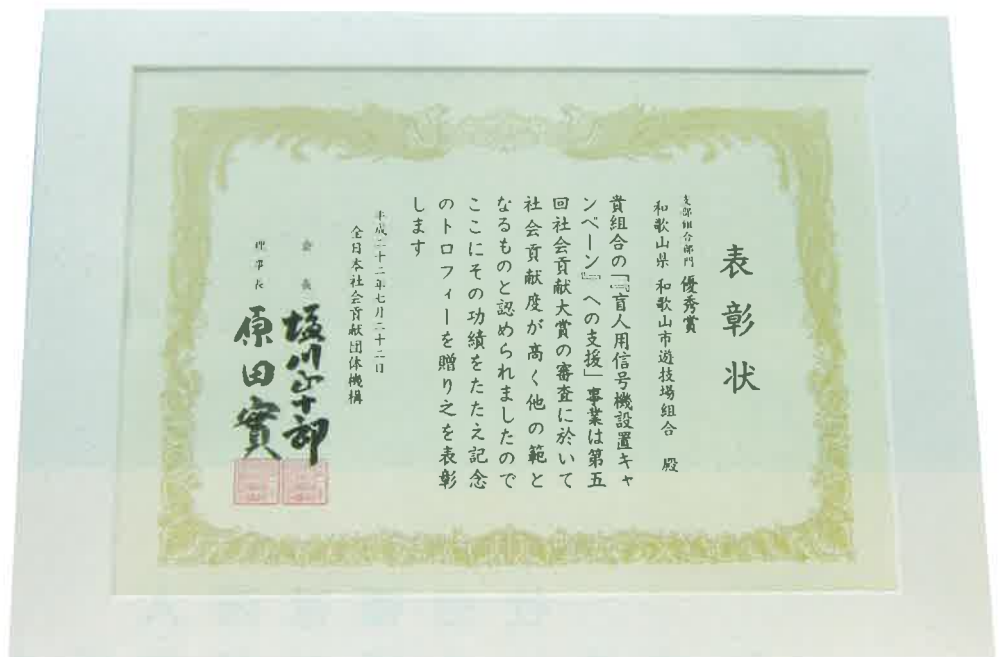 表彰状
支部組合部門 優秀賞
和歌山県 和歌山市遊技場組合 殿
貴組合の「『盲人用信号機設置キャ
ンペーン』への支援」事業は第五
回社会貢献大賞の審査に於いて
社会貢献度が高く他の範と
なるものと認められましたので
ここにその功績をたたえ記念
のトロフィーを贈り之を表彰
します
平成二十二年七月二十二日
全日本社会貢献団体機構
会長
理事長 原田實